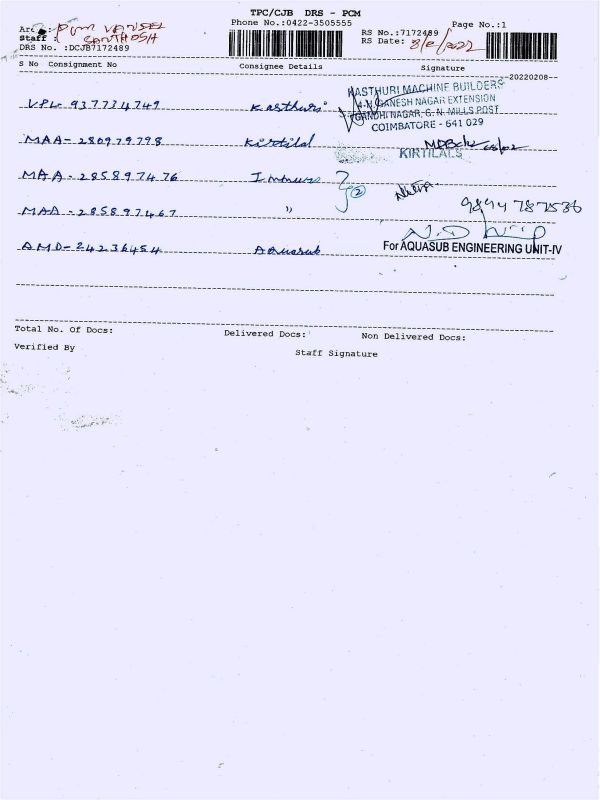 TPC/CJB DRS - PCM
Phone No.:0422-3505555 Page No.:1
Area: PCM
Staff : SANTHOSH
RS No.:7172489
RS Date: 8/2/2022
DRS No. :DCJB7172489
S No Consignment No Consignee Details Signature
20220208
VPL- 937774749 Kasthuri
KASTHURI MACHINE BUILDERS
GANESH NAGAR EXTENSION
GANDHI NAGAR, G. N. MILLS POST
COIMBATORE - 641 029
MAA- 280979798 Kirtilal
KIRTILALS 08/02
MAA - 285897476
2
MAA - 285897467 "
9894787586
AMD- 24236454 Aquasub
For AQUASUB ENGINEERING UNIT-IV
Total No. Of Docs: Delivered Docs: Non Delivered Docs:
Verified By Staff Signature